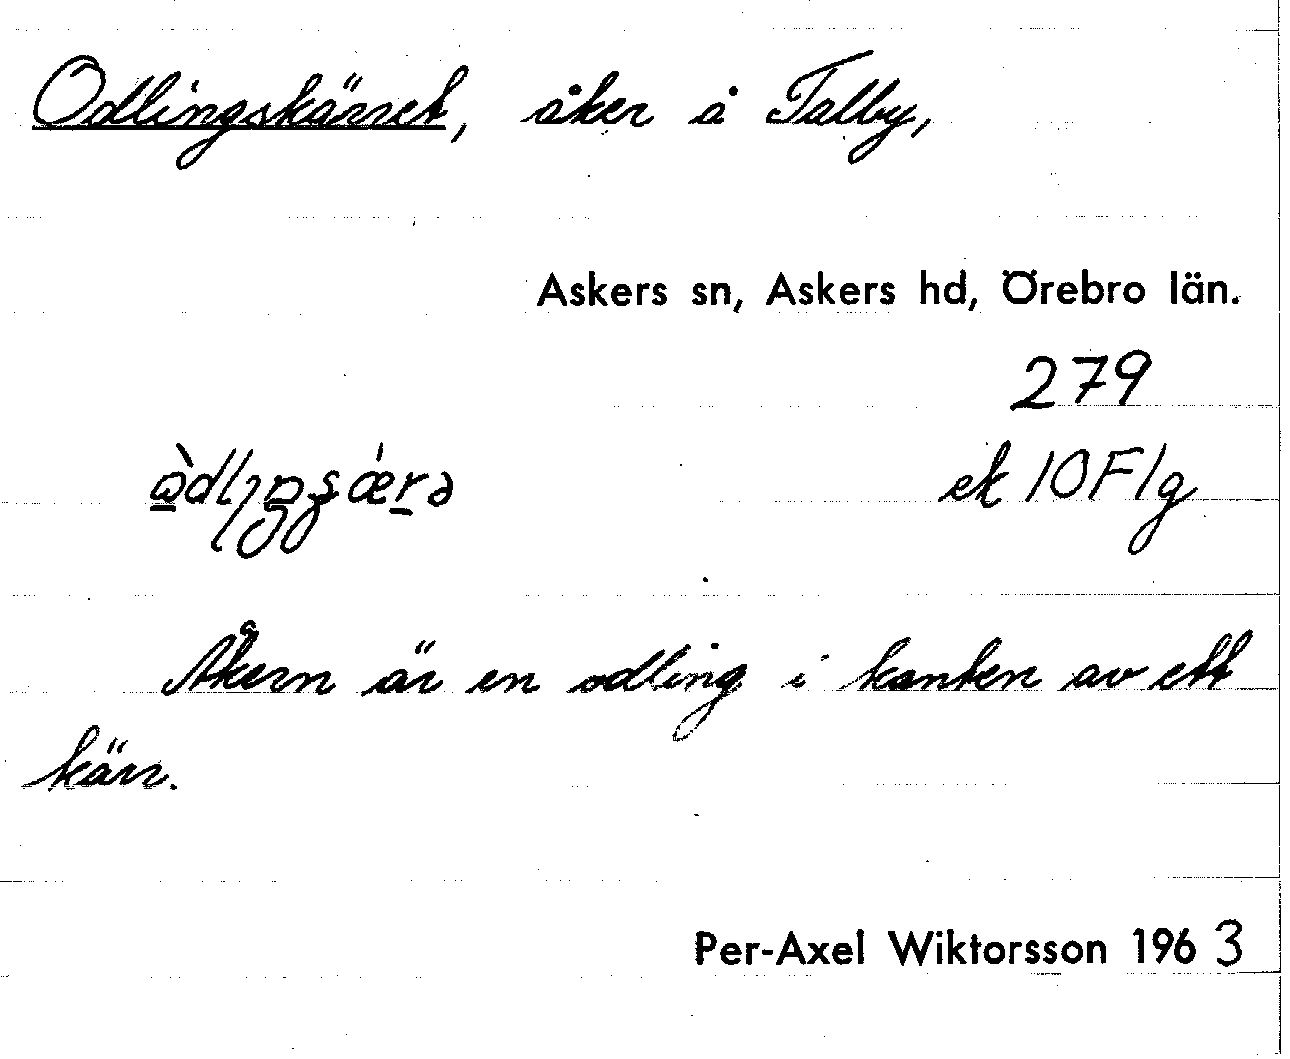 Odlingskärret, åker å Talby,
Askers sn, Askers hd, Örebro län.
279
ek 10F1g
Åkern är en odling i kanten av ett
kärr.
Per-Axel Wiktorsson 1963